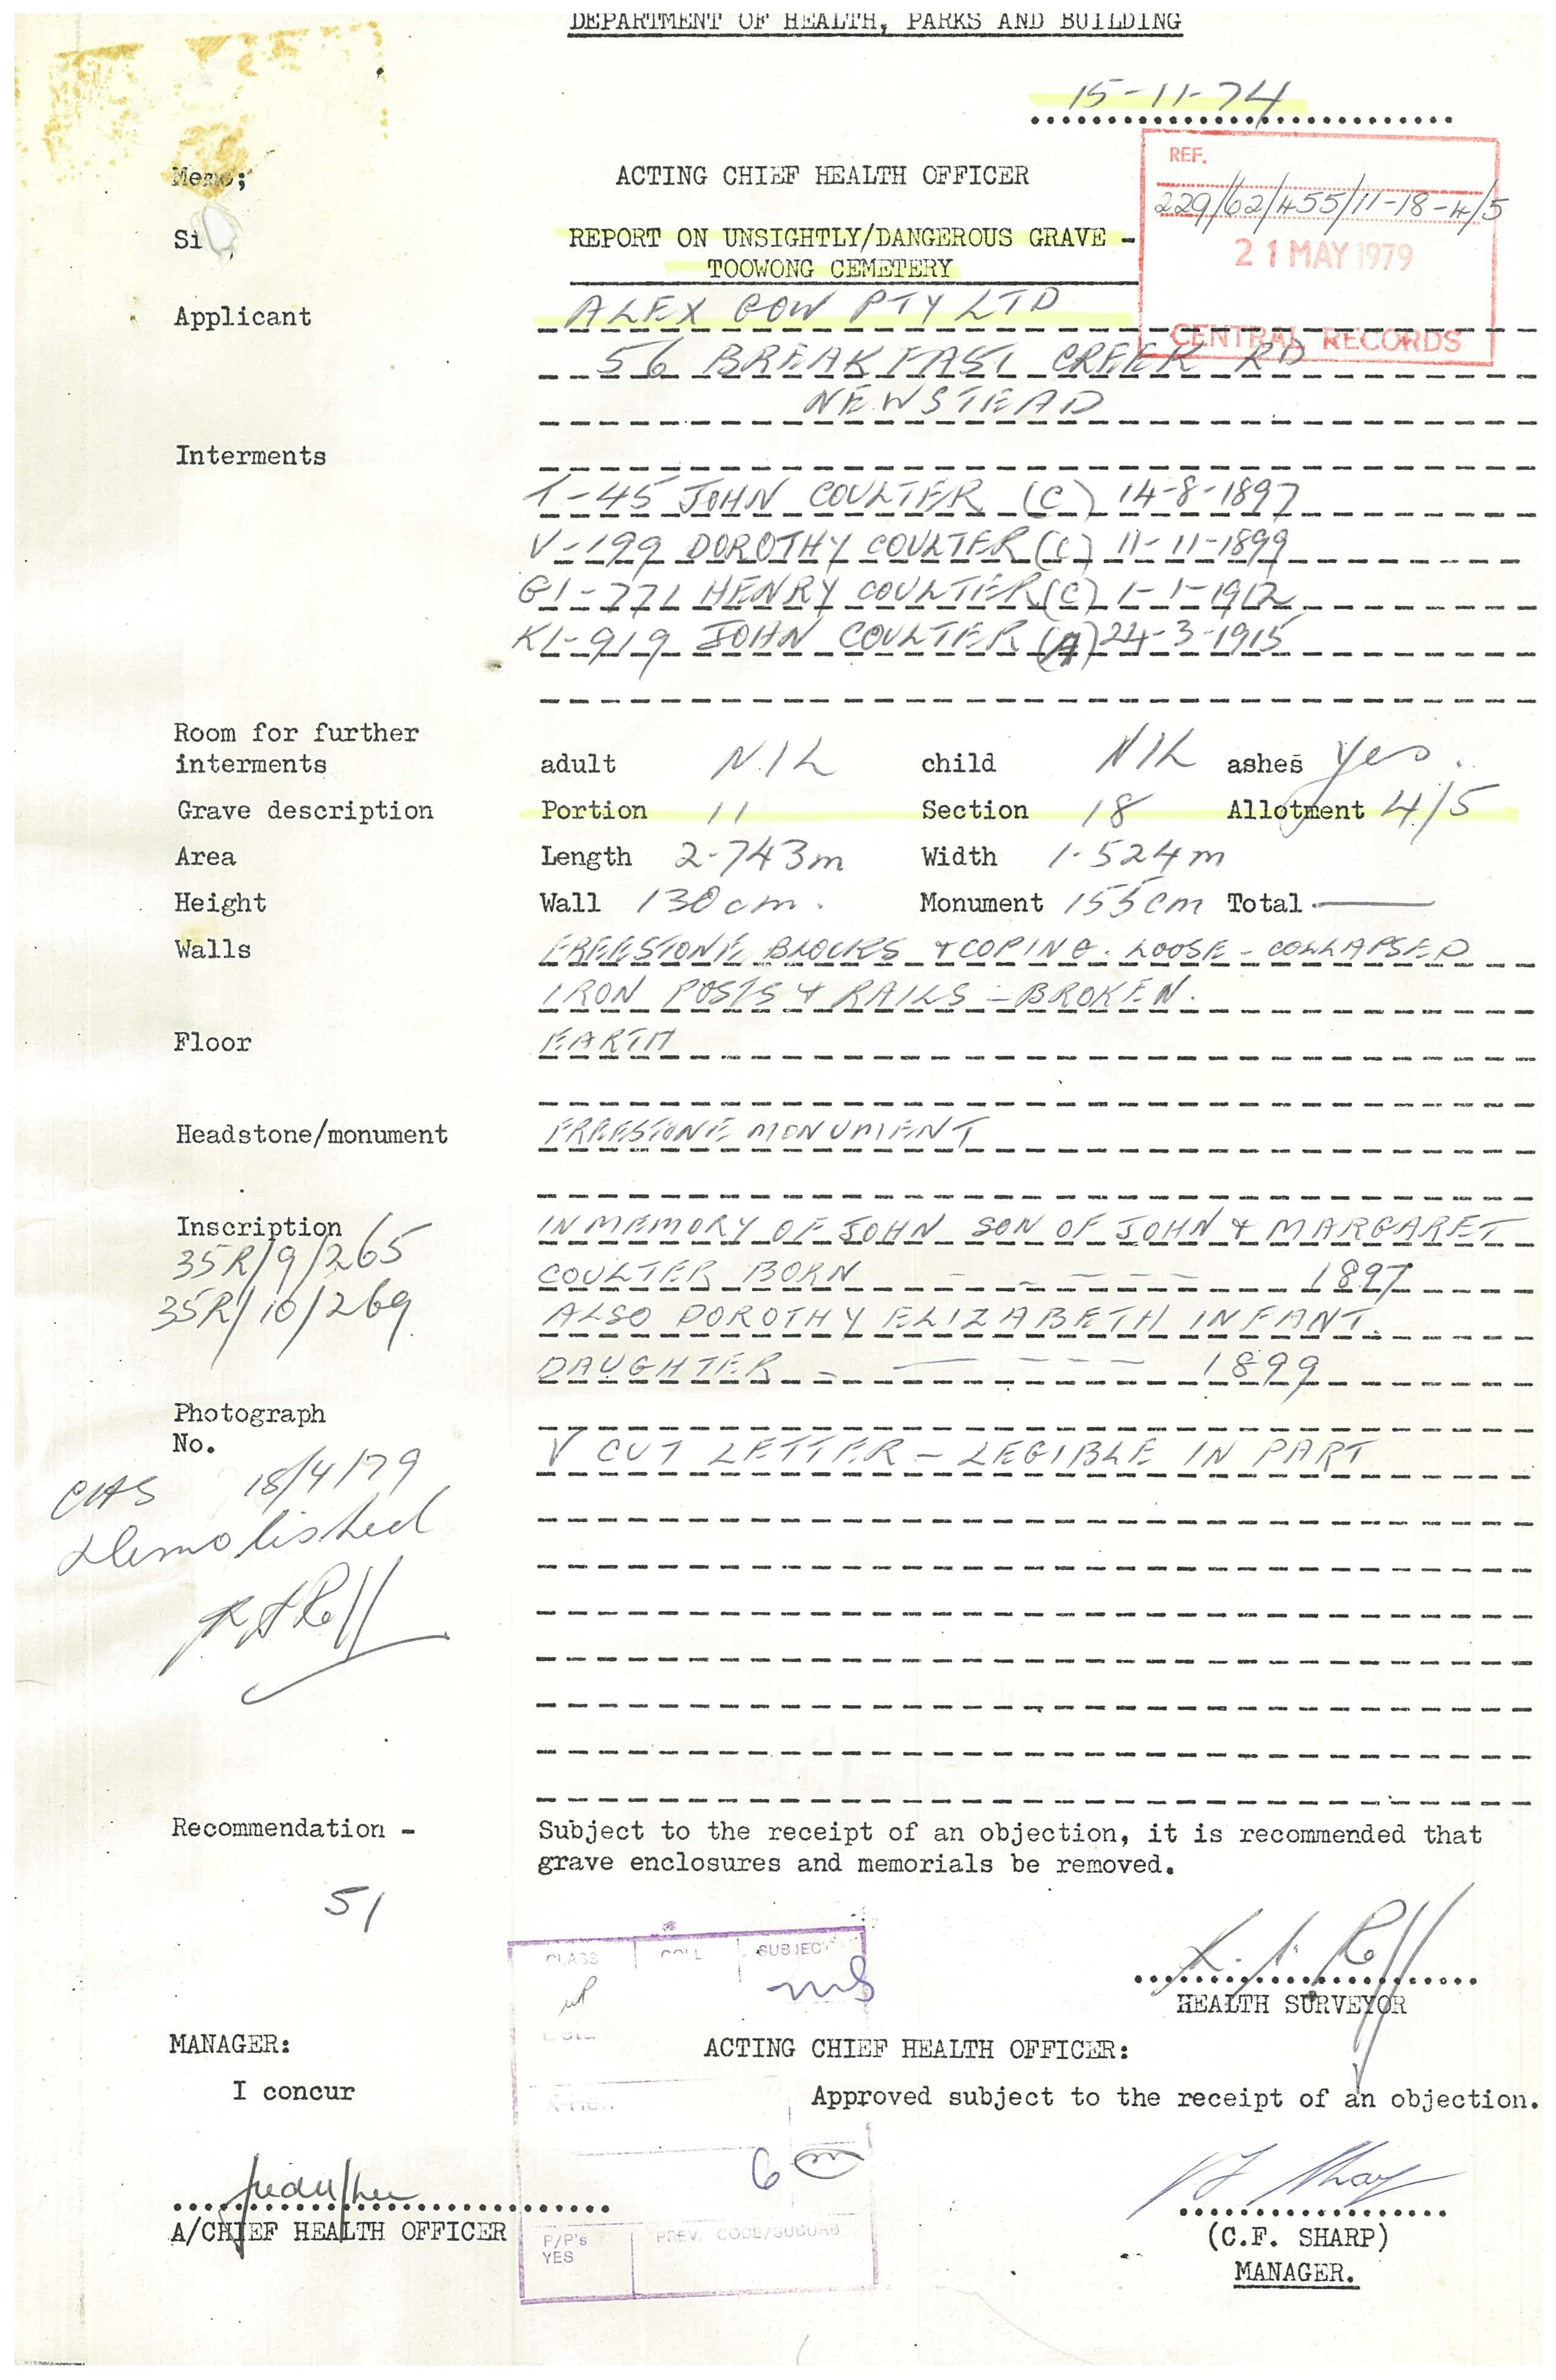 DEPARTMENT OF HEALTH, PARKS AND BUILDING
15-11-74
Memo; ACTING CHIEF HEALTH OFFICER
REF.
229/62/455/11-18-4/5
21 MAY 1979
CENTRAL RECORDS
Si
REPORT ON UNSIGHTLY/DANGEROUS GRAVE -
TOOWONG CEMETERY
Applicant ALEX GOW PTY LTD
56 BREAKFAST CREEK RD
NEWSTEAD
Interments
T-45 JOHN COULTER (C) 14-8-1897
V-199 DOROTHY COULTER (C) 11-11-1899
G1-771 HENRY COULTER (C) 1-1-1912
K1-919 JOHN COULTER (A) 24-3-1915
Room for further
interments adult NIL child NIL ashes yes.
Grave description Portion 11 Section 18 Allotment 4/5
Area Length 2.743m Width 1.524m
Height Wall 130cm. Monument 155cm Total —
Walls FREESTONE BLOCKS & COPING. LOOSE - COLLAPSED
IRON POSTS & RAILS - BROKEN.
Floor EARTH
Headstone/monument FREESTONE MONUMENT
Inscription IN MEMORY OF JOHN SON OF JOHN & MARGARET
35R/9/265
COULTER BORN - - - - - 1897
35R/10/269
ALSO DOROTHY ELIZABETH INFANT.
DAUGHTER - — - - - 1899
Photograph
No.
V CUT LETTER - LEGIBLE IN PART
18/4/79
Demolished
Recommendation - Subject to the receipt of an objection, it is recommended that
grave enclosures and memorials be removed.
51
CLASS COLL SUBJECT
HEALTH SURVEYOR
MANAGER: ACTING CHIEF HEALTH OFFICER:
I concur Approved subject to the receipt of an objection.
6 m
A/CHIEF HEALTH OFFICER
P/P's
YES
PREV. CODE/SUBURB
(C.F. SHARP)
MANAGER.